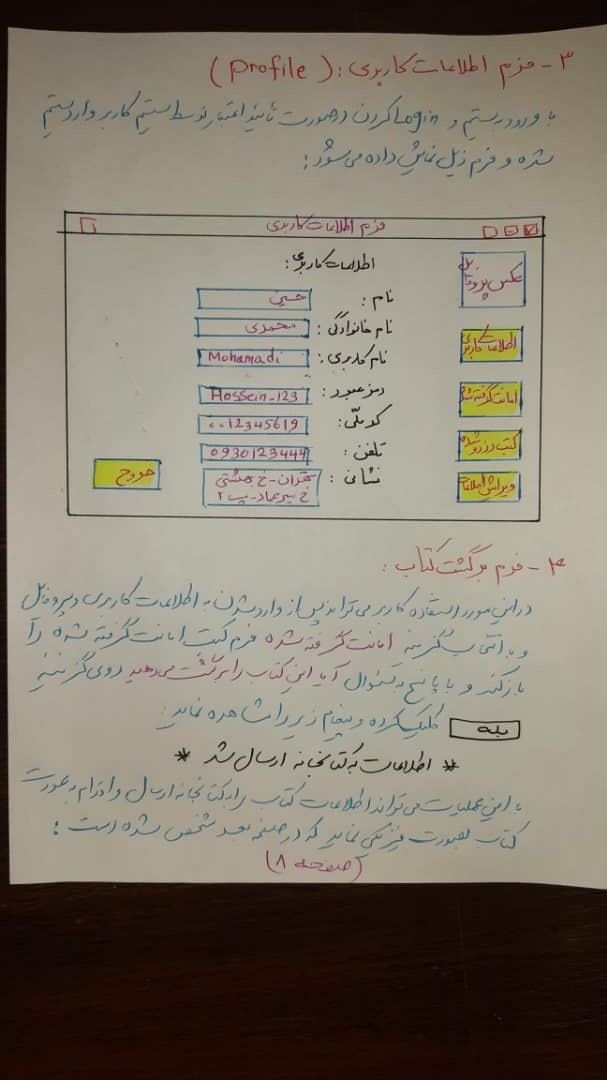 ۳- فرم اطلاعات کاربری : (Profile)
با ورود به سیستم و Login کردن در صورت تأیید اعتبار توسط سیستم کاربر وارد سیستم
شده و فرم زیل نمایش داده می‌شود :
فرم اطلاعات کاربری
عکس پروفایل
اطلاعات کاربری :
نام : حسین
نام خانوادگی : محمدی
اطلاعات کاربری
نام کاربری : Mohamadi
رمز عبور : Hossein_123
امانت گرفته شده
کد ملی : ۰۰12345619
کتب رزرو شده
تلفن : 0930123444
ویرایش اطلاعات
نشانی : تهران - خ بهشتی
خ میرعماد - پ ۲
خروج
۴- فرم برگشت کتاب :
در این مورد استفاده کاربر می‌تواند پس از وارد شدن به اطلاعات کاربری و پروفایل
و با انتخاب گزینه امانت گرفته شده فرم کتب امانت گرفته شده را
باز کند و با پاسخ به سئوال آیا این کتاب را برگشت می‌دهید روی گزینه
بله کلیک کرده و پیغام زیر را مشاهده نماید :
* اطلاعات به کتابخانه ارسال شد *
با این عملیات می‌تواند اطلاعات کتاب را به کتابخانه ارسال و اقدام به عودت
کتاب بصورت فیزیکی نماید که در صفحه بعد مشخص شده است :
(صفحه ۸)